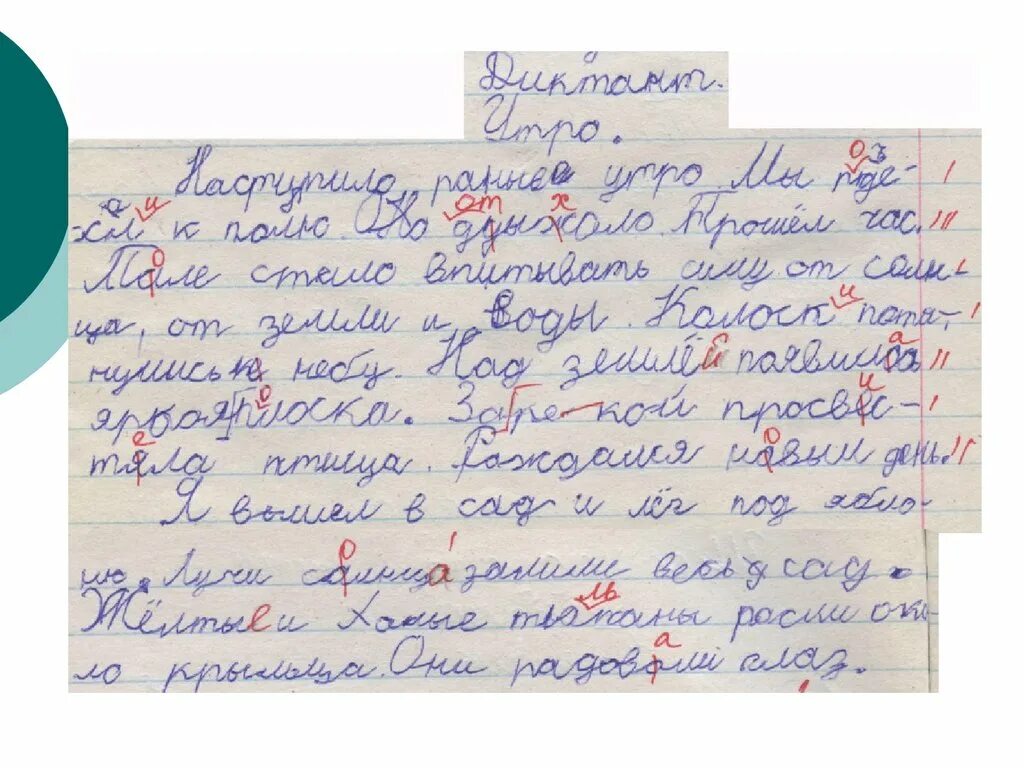 Диктант.
Утро.
Наступило раньеа утро. Мы пде-
хал к полю. Оно ддыжало. Прошёл час.
Пале стало впитывать силу от солн-
ца, от земли и воды. Колоск пота-
нулиськ небу. Над землёй появилась
яркоя плоска. За ре-кой просвис-
тяла птица. Раждался навый день.
Я вышел в сад и лёг под ябло-
ню. Лучи салнца залили весь сад.
Жёлтые и тытаны расли око-
ло крыльца. Они радовали глаз.